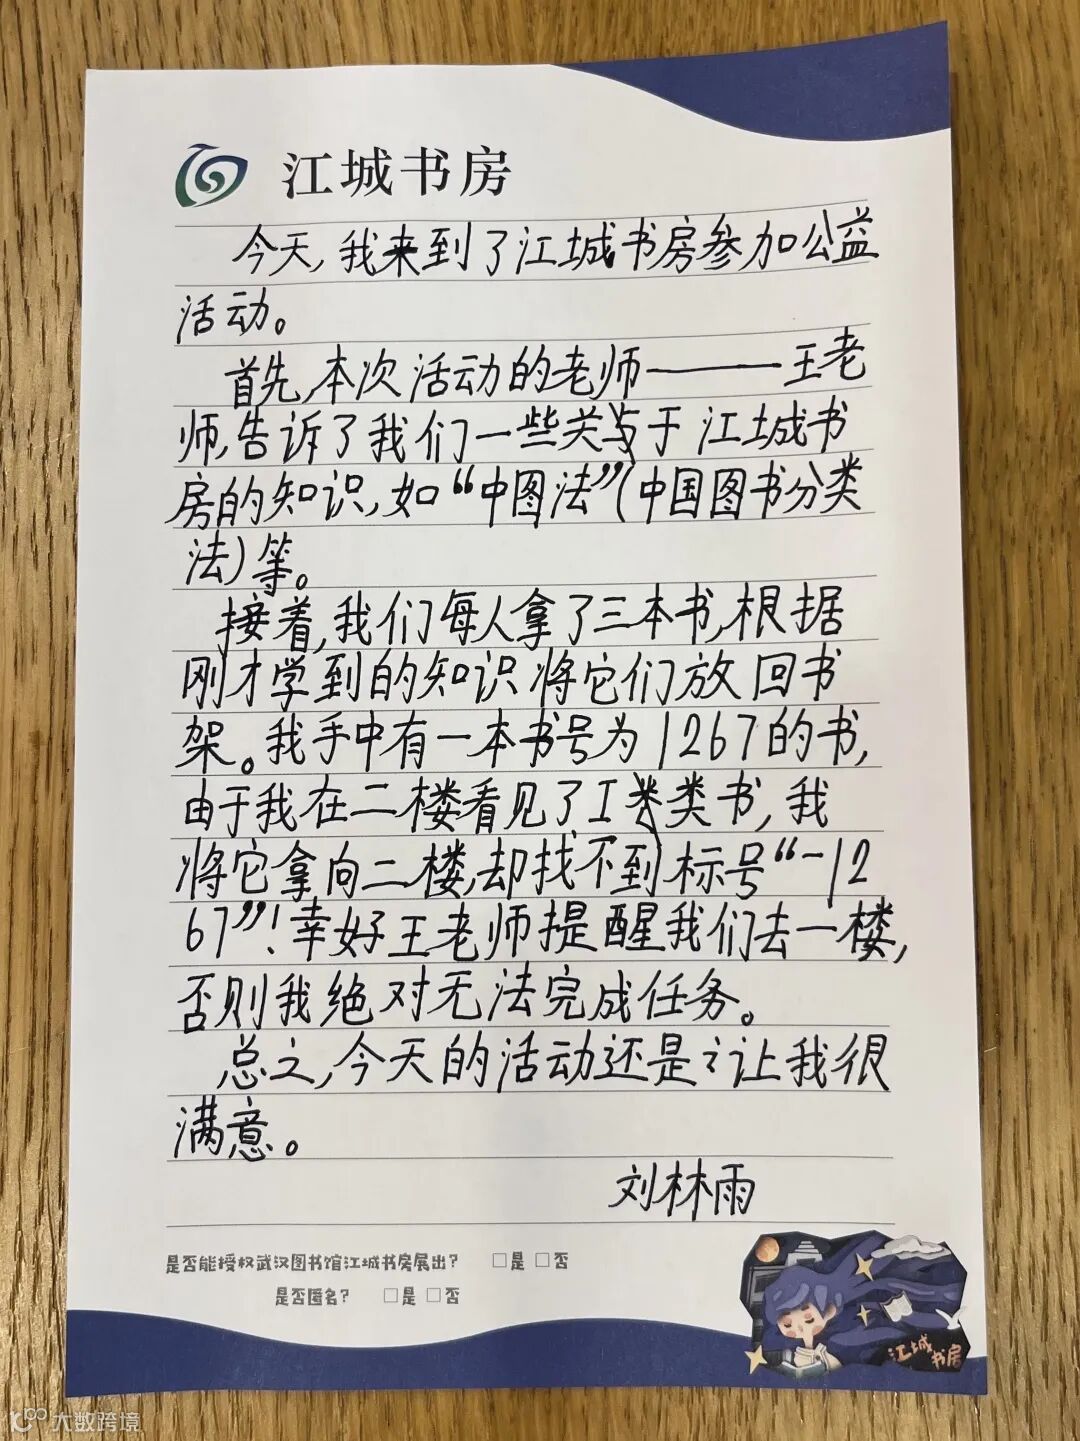 江城书房
今天,我来到了江城书房参加公益
活动。
首先,本次活动的老师———王老
师,告诉了我们一些关于江城书
房的知识,如“中图法”(中国图书分类
法)等。
接着,我们每人拿了三本书,根据
刚才学到的知识将它们放回书
架。我手中有一本书号为1267的书,
由于我在二楼看见了I类书,我
将它拿向二楼,却找不到标号“-12
67”!幸好王老师提醒我们去一楼,
否则我绝对无法完成任务。
总之,今天的活动还是让我很
满意。
刘林雨
是否能授权武汉图书馆江城书房展出? □是 □否
是否匿名? □是 □否
江城书房
大数跨境